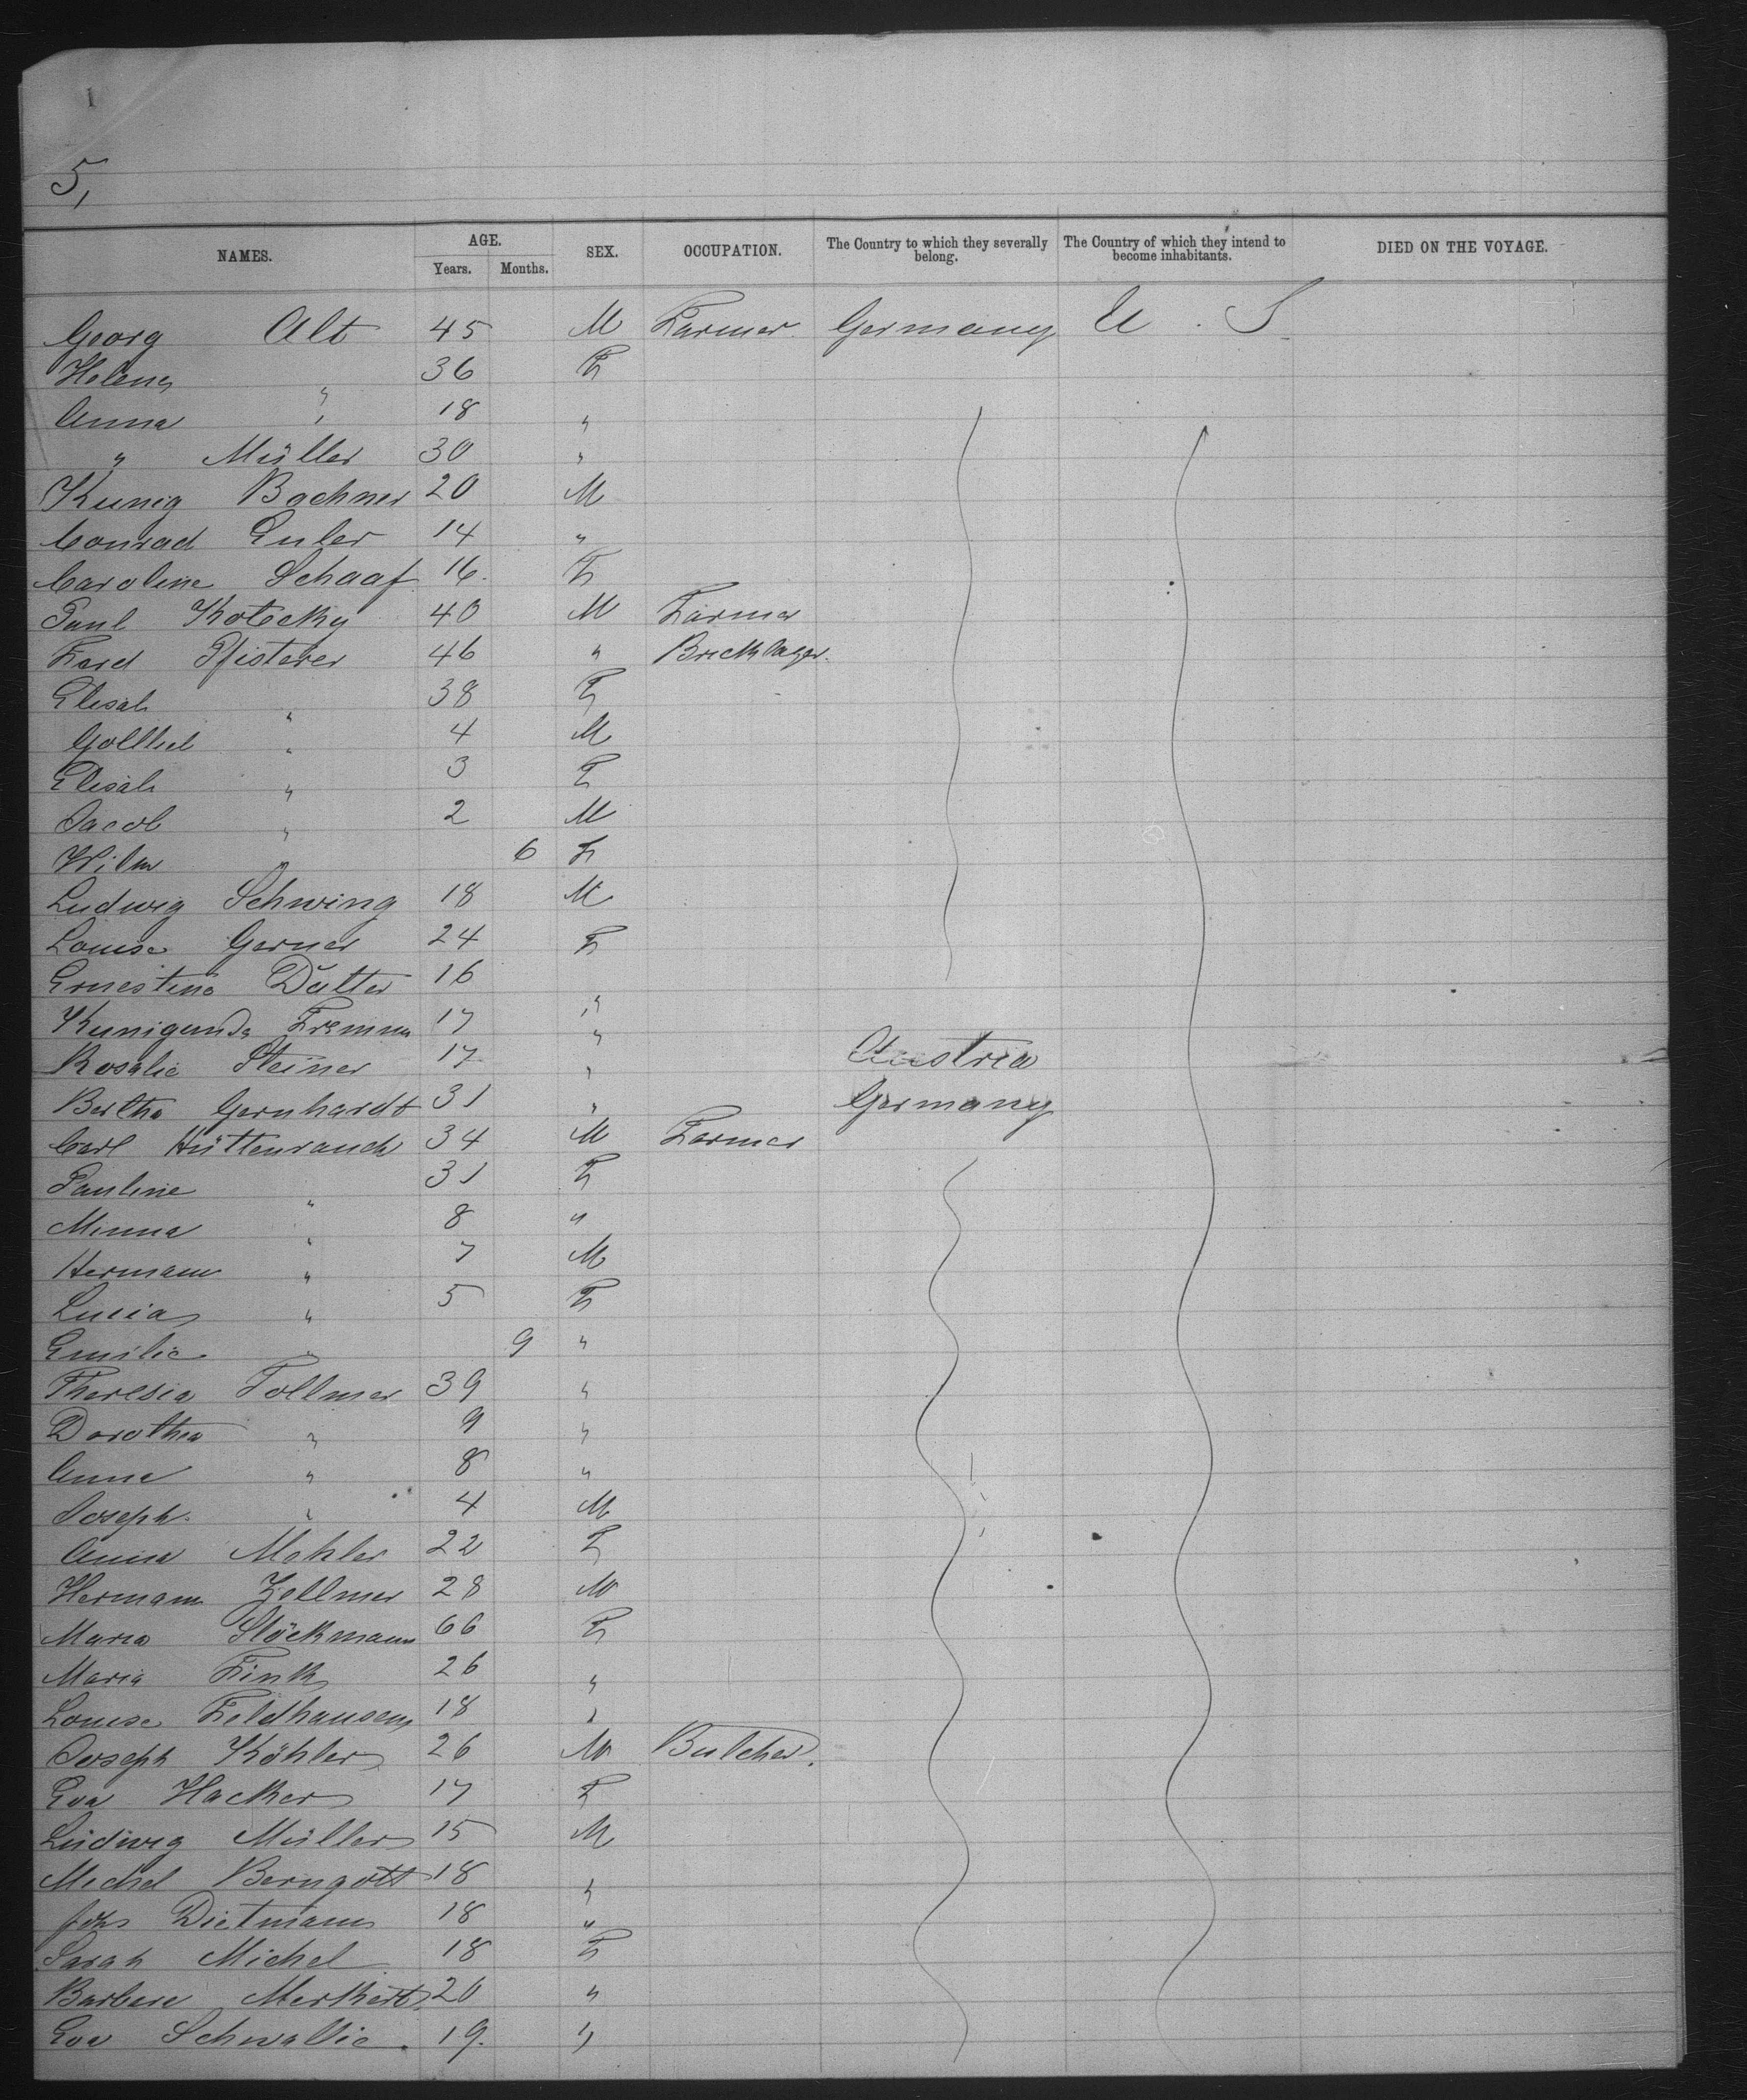 1
5,
NAMES. AGE. Years. Months. SEX. OCCUPATION. The Country to which they severally belong. The Country of which they intend to become inhabitants. DIED ON THE VOYAGE.
Georg Alt 45 M Farmer Germany U. S.
Helena " 36 F
Anna " 18 "
" Müller 30 "
Kunig Bachner 20 M
Conrad Euler 14 "
Caroline Schaaf 16. F
Paul Kotecky 40 M Farmer
Ferd Pfisterer 46 " Bricklayer.
Elisab " 38 F
Gottlieb " 4 M
Elisab " 3 F
Jacob " 2 M
Wilm " 6 F
Ludwig Schwing 18 M
Louise Gerner 24 F
Ernestine Dutter 16 "
Kunigunda 17 "
Rosalie Steiner 17 " Austria
Bertha Gernhardt 31 " Germany
Carl Hüttenrauch 34 M Farmer
Pauline " 31 F
Minna " 8 "
Hermann " 7 M
Lucia " 5 F
Emilie " 9 "
Theresia Tollmer 39 "
Dorothea " 9 "
Anna " 8 "
Joseph. " 4 M
Anna Mahler 22 F
Hermann Zollmer 28 M
Maria Stöckmann 66 F
Maria Fink 26 "
Louise Feldhausen 18 "
Joseph Köhler 26 M Butcher.
Eva Hacker 17 F
Ludwig Müller 15 M
Michel Berngott 18 "
Johs Dietmann 18 "
Sarah Michel 18 F
Barbara Merkert 20 "
Eva Schwallie. 19. "